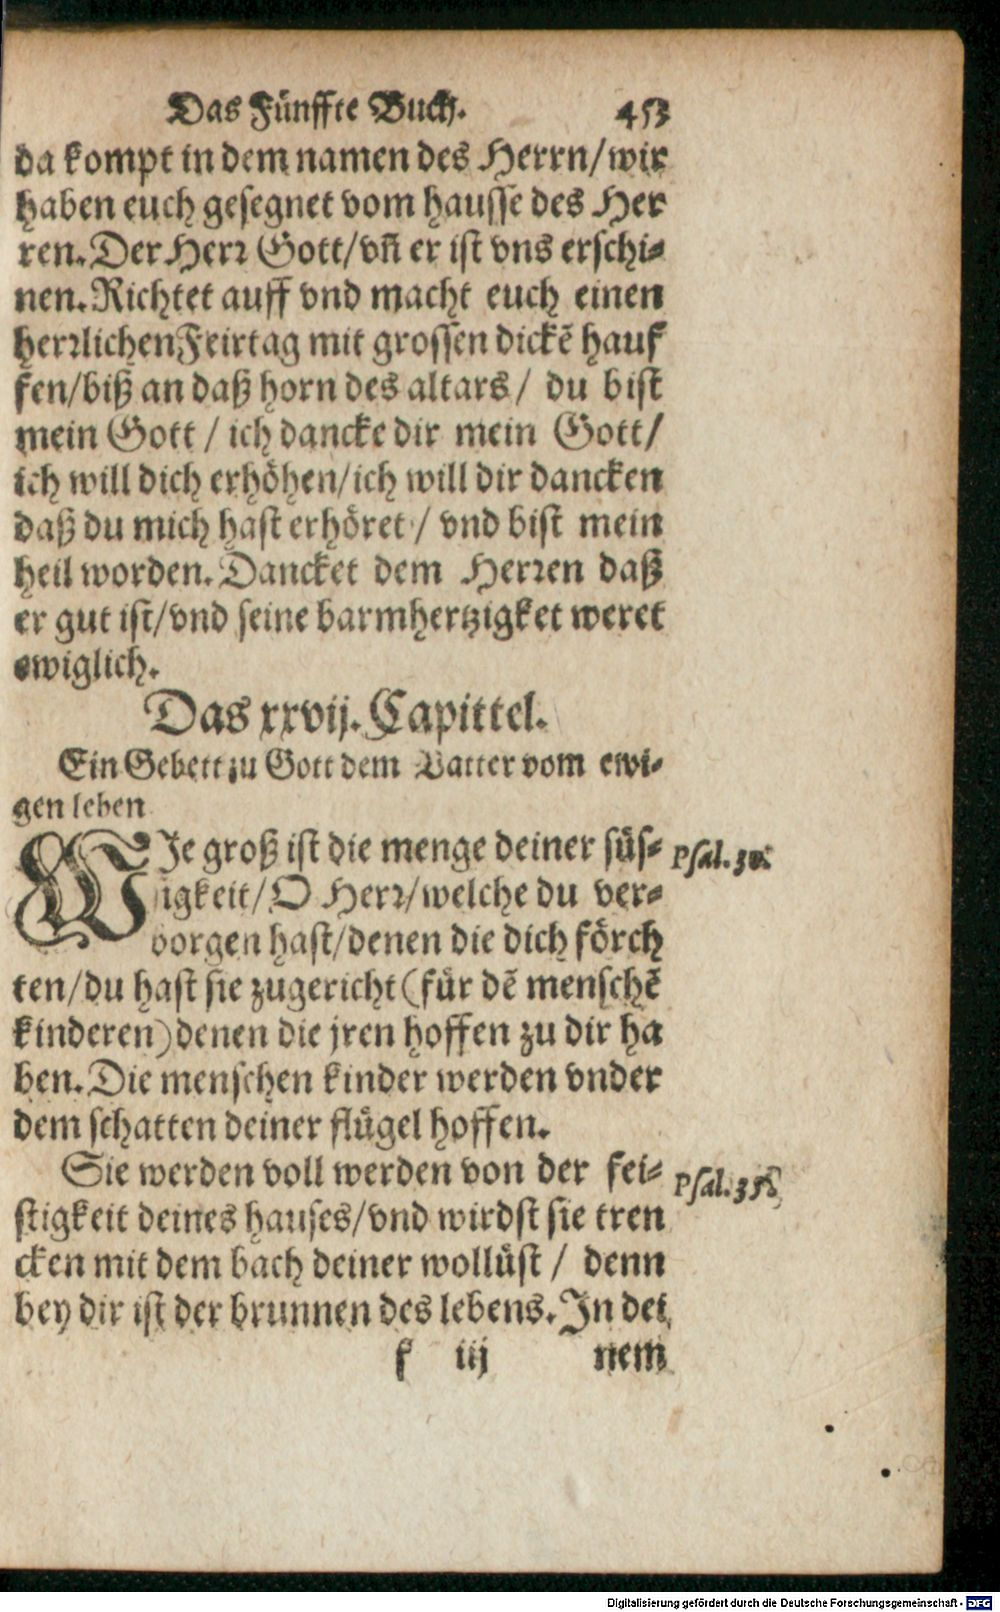 Das Fünffte Buch. 453
da kompt in dem namen des Herrn/wir
haben euch gesegnet vom hausse des Her
ren. Der Herr Gott/vñ er ist vns erschi-
nen. Richtet auff vnd macht euch einen
herrlichen Feirtag mit grossen dickẽ hauf
fen/biß an daß horn des altars/ du bist
mein Gott / ich dancke dir mein Gott/
ich will dich erhöhen/ich will dir dancken
daß du mich hast erhöret / vnd bist mein
heil worden. Dancket dem Herren daß
er gut ist/vnd seine barmhertzigket weret
ewiglich.
Das xxvij. Capittel.
Ein Gebett zu Gott dem Vatter vom ewi-
gen leben
WJe groß ist die menge deiner süs- Psal. 30.
sigkeit/O Herr/welche du ver-
borgen hast/denen die dich förch
ten/du hast sie zugericht (für dẽ menschẽ
kinderen) denen die jren hoffen zu dir ha
ben. Die menschen kinder werden vnder
dem schatten deiner flügel hoffen.
Sie werden voll werden von der fei- Psal. 35.
stigkeit deines hauses/vnd wirdst sie tren
cken mit dem bach deiner wollüst / denn
bey dir ist der brunnen des lebens. Jn dei
k iij nem
Digitalisierung gefördert durch die Deutsche Forschungsgemeinschaft - DFG